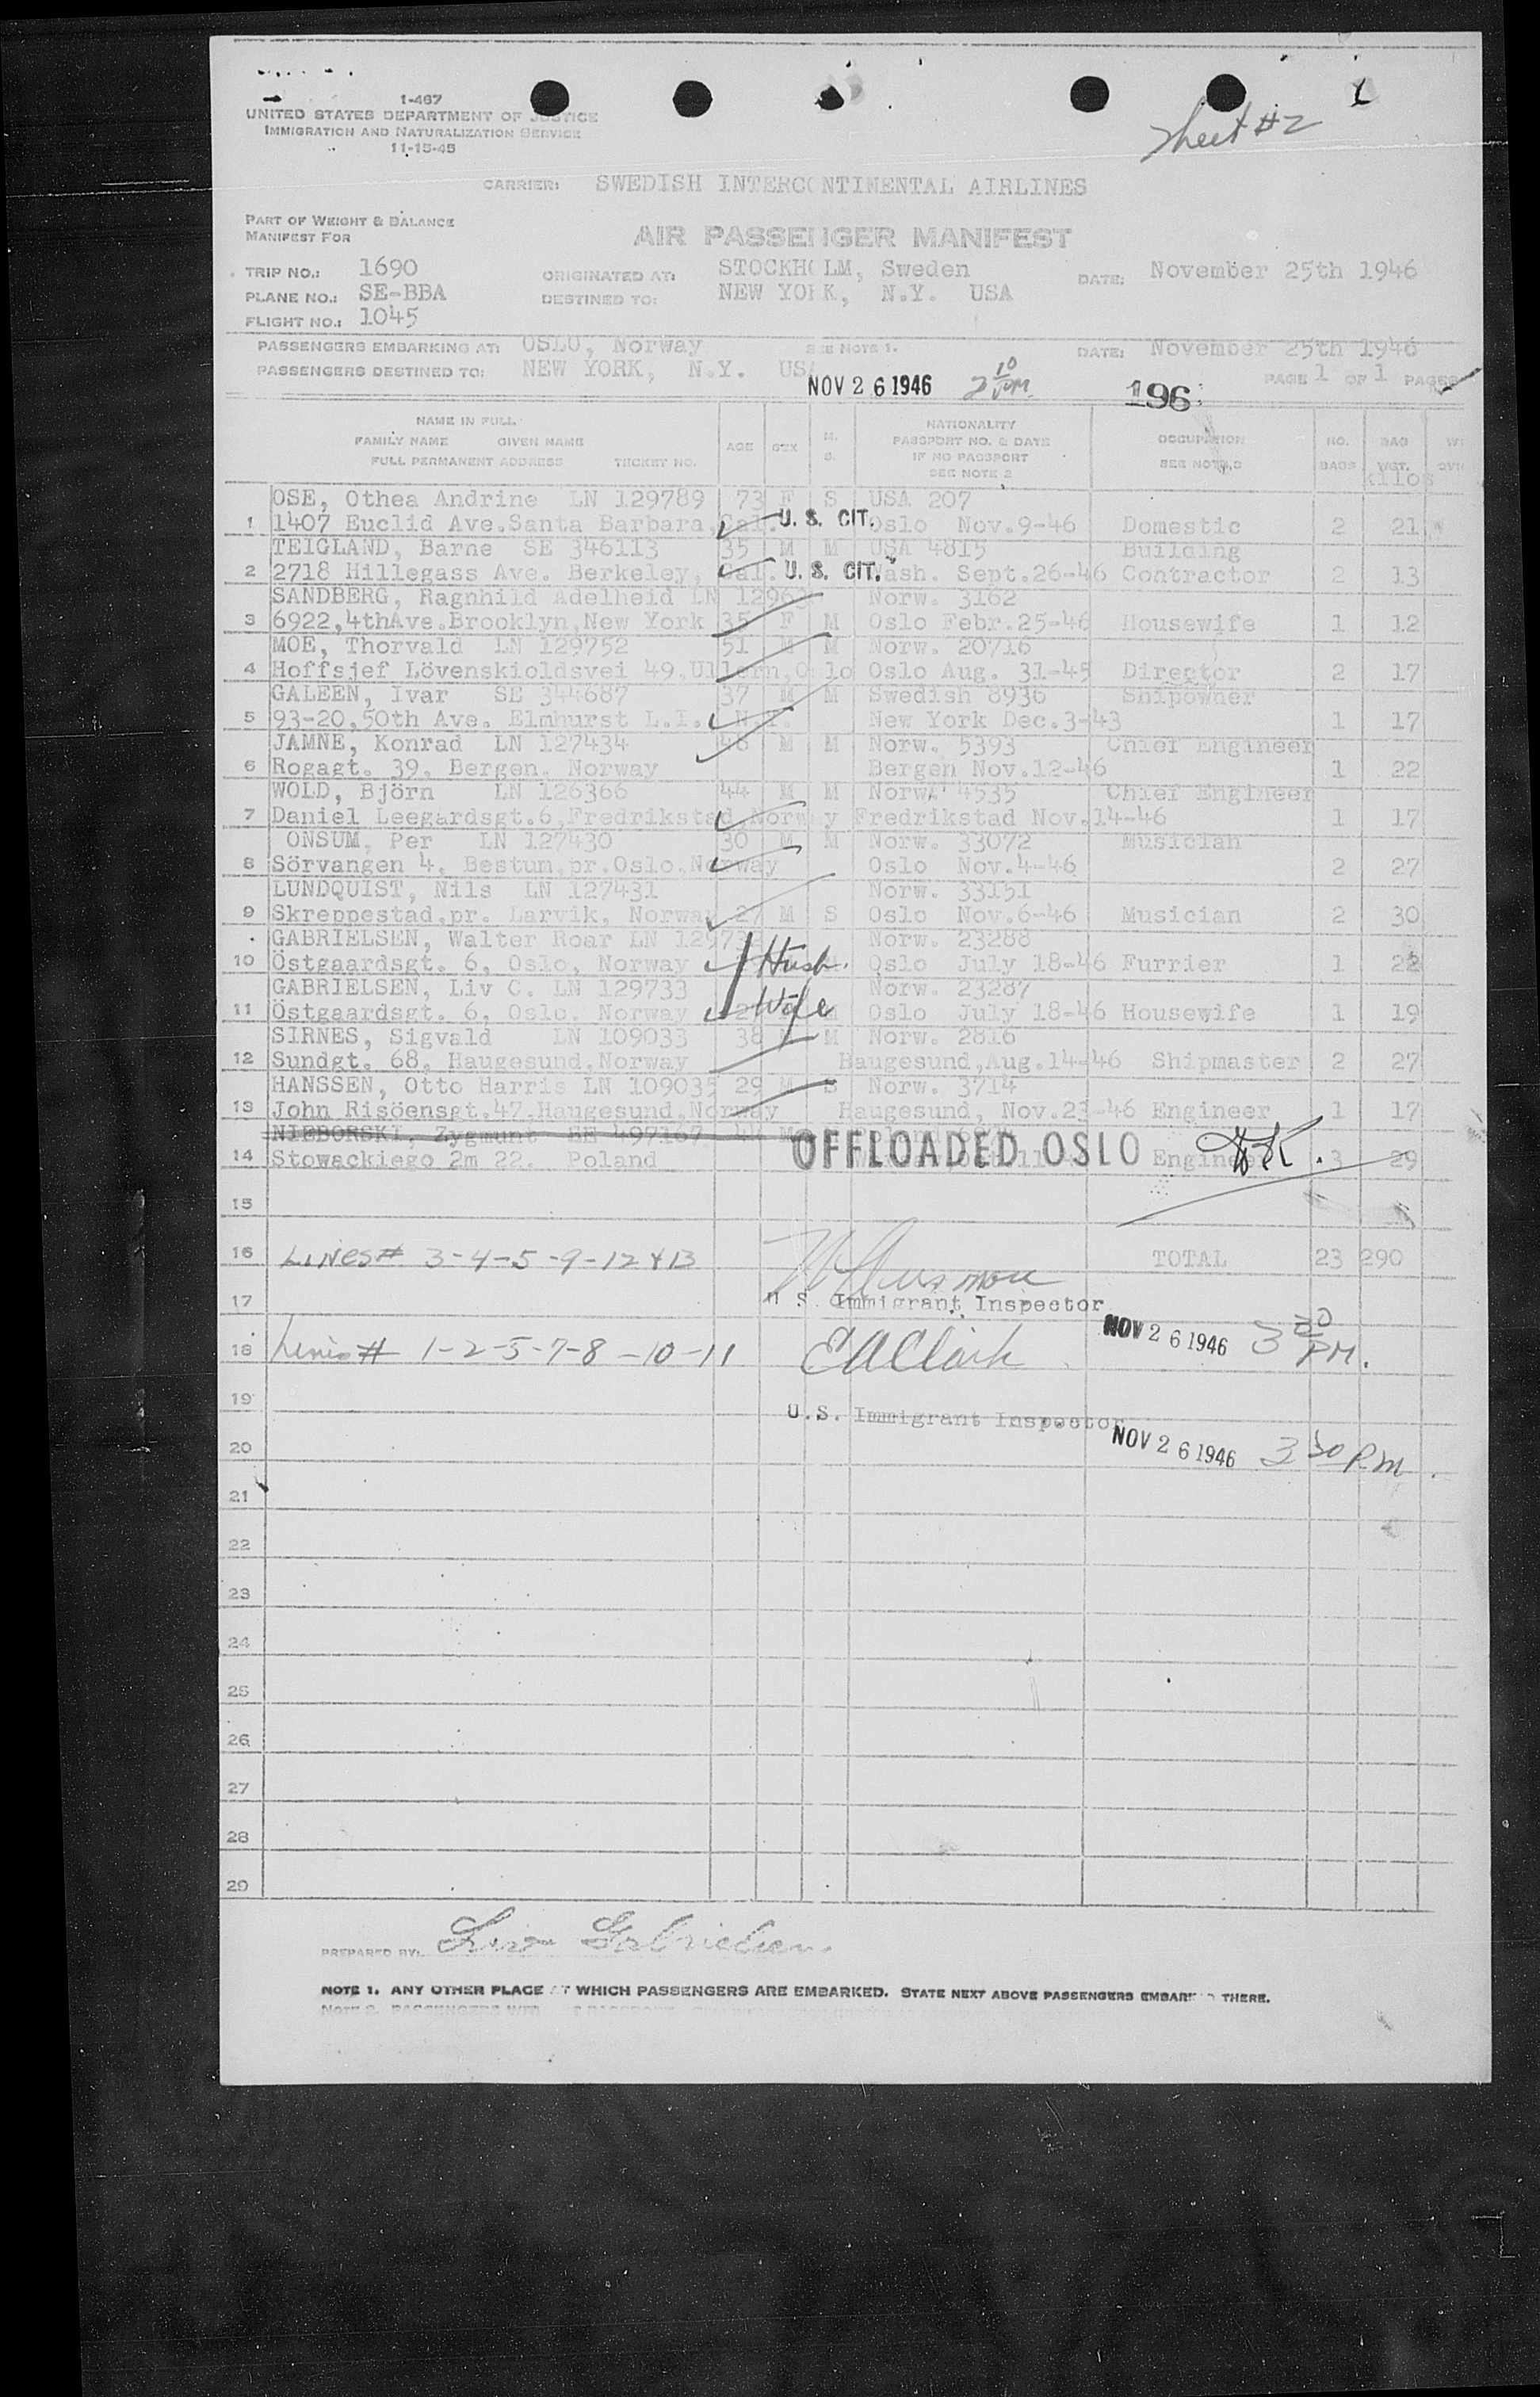 1-467
UNITED STATES DEPARTMENT OF JUSTICE
IMMIGRATION AND NATURALIZATION SERVICE
11-15-45
Sheet #2
CARRIER: SWEDISH INTERCONTINENTAL AIRLINES
PART OF WEIGHT & BALANCE
MANIFEST FOR
AIR PASSENGER MANIFEST
TRIP NO.: 1690 ORIGINATED AT: STOCKHOLM, Sweden DATE: November 25th 1946
PLANE NO.: SE-BBA DESTINED TO: NEW YORK, N.Y. USA
FLIGHT NO.: 1045
PASSENGERS EMBARKING AT: OSLO, Norway SEE NOTE 1. DATE: November 25th 1946
PASSENGERS DESTINED TO: NEW YORK, N.Y. USA PAGE 1 OF 1 PAGES
NOV 26 1946 2 10 PM 196
NAME IN FULL
FAMILY NAME GIVEN NAME
FULL PERMANENT ADDRESS TICKET NO.
AGE SEX M. S.
NATIONALITY
PASSPORT NO. & DATE
IF NO PASSPORT
SEE NOTE 2
OCCUPATION
SEE NOTE 3
NO. BAGS
BAG WGT.
kilos
OSE, Othea Andrine LN 129789 73 F S USA 207
1 1407 Euclid Ave.Santa Barbara, Cal. U. S. CIT. Oslo Nov.9-46 Domestic 2 21
TEIGLAND, Barne SE 346113 35 M M USA 4815 Building
2 2718 Hillegass Ave. Berkeley, Cal. U. S. CIT. Wash. Sept.26-46 Contractor 2 13
SANDBERG, Ragnhild Adelheid LN 1296 Norw. 3162
3 6922,4thAve.Brooklyn,New York 35 F M Oslo Febr.25-46 Housewife 1 12
MOE, Thorvald LN 129752 51 M M Norw. 20716
4 Hoffsjef Lövenskioldsvei 49,Ullern,Oslo Oslo Aug. 31-45 Director 2 17
GALEEN, Ivar SE 344687 37 M M Swedish 8936 Shipowner
5 93-20,50th Ave. Elmhurst L.I. N.Y. New York Dec.3-43 1 17
JAMNE, Konrad LN 127434 46 M M Norw. 5393 Chief Engineer
6 Rogagt. 39, Bergen. Norway Bergen Nov.12-46 1 22
WOLD, Björn LN 126366 44 M M Norw. 4535 Chief Engineer
7 Daniel Leegardsgt.6,Fredrikstad Norway Fredrikstad Nov.14-46 1 17
ONSUM, Per LN 127430 30 M M Norw. 33072 Musician
8 Sörvangen 4, Bestum,pr.Oslo,Norway Oslo Nov.4-46 2 27
LUNDQUIST, Nils LN 127431 Norw. 33151
9 Skreppestad,pr. Larvik, Norway 27 M S Oslo Nov.6-46 Musician 2 30
GABRIELSEN, Walter Roar LN Norw. 23288
10 Östgaardsgt. 6, Oslo, Norway Husb. Oslo July 18-46 Furrier 1 22
GABRIELSEN, Liv C. LN 129733 Norw. 23287
11 Östgaardsgt. 6, Oslo. Norway Wife Oslo July 18-46 Housewife 1 19
SIRNES, Sigvald LN 109033 38 M M Norw. 2816
12 Sundgt. 68, Haugesund,Norway Haugesund,Aug.14-46 Shipmaster 2 27
HANSSEN, Otto Harris LN 109035 29 M S Norw. 3714
13 John Risöensgt.47,Haugesund,Norway Haugesund, Nov.23-46 Engineer 1 17
NIEBORSKI, Zygmunt SE 497167
14 Stowackiego 2m 22. Poland OFFLOADED OSLO Engineer 3 29
15
16 LINES# 3-4-5-9-12 & 13 TOTAL 23 290
17 U S. Immigrant Inspector
NOV 26 1946 3 30 PM.
18 Lines # 1-2-5-7-8-10-11 E A Clark
19 U.S. Immigrant Inspector
20 NOV 26 1946 3 30 P.M.
21
22
23
24
25
26
27
28
29
PREPARED BY: Liv Gabrielsen
NOTE 1. ANY OTHER PLACE AT WHICH PASSENGERS ARE EMBARKED. STATE NEXT ABOVE PASSENGERS EMBARKED THERE.